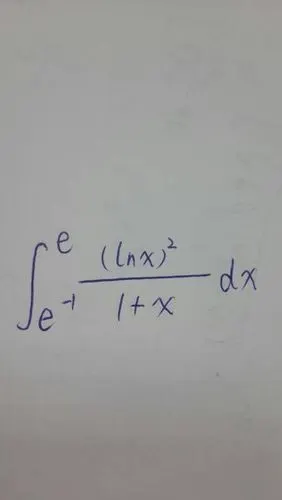 ∫_{e^{-1}}^{e} \frac{(lnx)^2}{1+x} dx